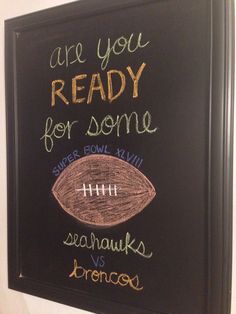 are you
READY
for some
SUPER BOWL XLVIII
seahawks
VS
broncos